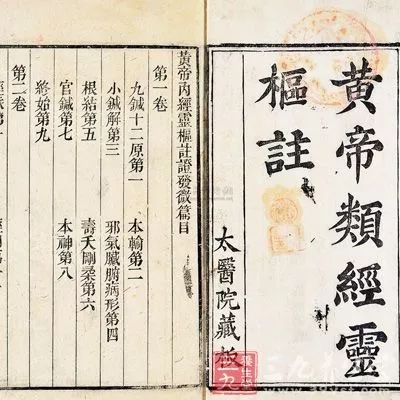 黄帝類經靈
樞註
太醫院藏板
黃帝内經靈樞註證發微篇目
第一卷
九鍼十二原第一
本輸第二
小鍼解第三
邪氣臟腑病形第四
根結第五
壽夭剛柔第六
官鍼第七
本神第八
終始第九
第二卷